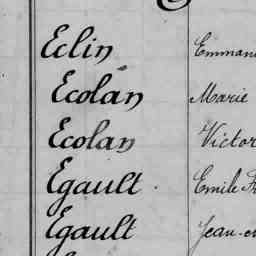 Eclin
Ecolan Marie
Ecolan Victor
Egault Emile
Egault